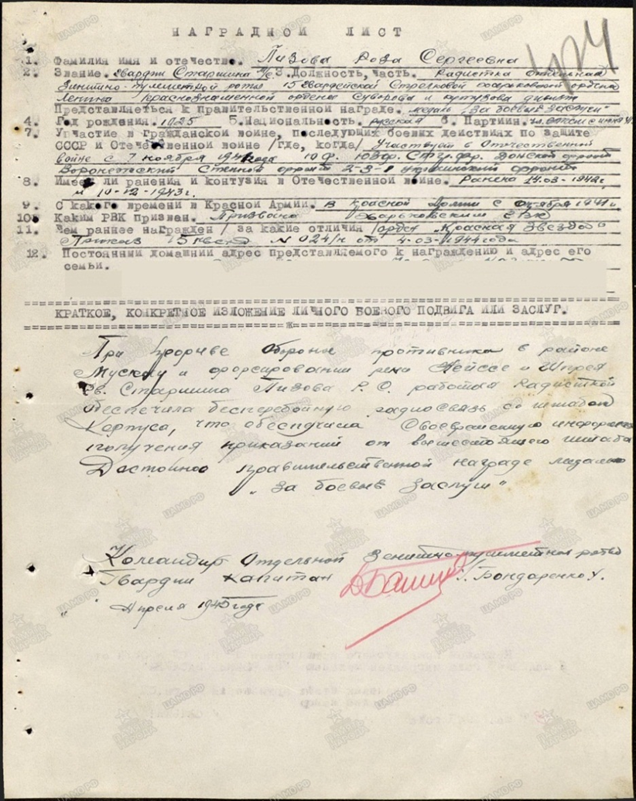 НАГРАДНОЙ ЛИСТ
424
1. Фамилия имя и отечество. Пизова Роза Сергеевна
2. Звание. Гвардии Старшина М/С 3. Должность, часть. Радистка отдельная
Зенитно-пулеметной роты 15 Гвардейской Стрелковой ордена
Ленина Краснознаменной ордена Суворова и Кутузова дивизии
Представляеться к Правительственной Награде. медаль "За боевые заслуги"
4. Год рождения. 1925 5. Национальность. русская 6. Партийн. чл. ВЛКСМ с
7. Участие в Гражданской войне, последующих боевых действиях по защите
СССР и Отечественной войне /где, когда/ Участвует в Отечественной
войне с 7 ноября 1941 года Ю.Ф. Юго. Донской фронт
Воронежский Степной фронт 2-3-1 Украинский фронт
8. Имеет ли ранения и контузия в Отечественной войне. Ранена 24.03-1942г
и 10-12-1943г.
9. С какого времени в Красной Армии. в Красной Армии с октября 1941г
10. Каким РВК призван. Призвана Харьковским РВК
11. Чем раннее награжден / за какие отличия /орден "Красная Звезда"
Приказ № 024/н от 4-03-1944 года
12. Постоянный домашний адрес представляемого к награждению и адрес его
семьи.
КРАТКОЕ, КОНКРЕТНОЕ ИЗЛОЖЕНИЕ ЛИЧНОГО БОЕВОГО ПОДВИГА ИЛИ ЗАСЛУГ.
При прорыве обороны противника в районе
Мускау и форсировании реки Нейссе и Шпрее
Гв. Старшина Пизова Р.С. работая Радисткой
обеспечила бесперебойную радиосвязь со штабом
Корпуса, что обеспечила Своевременную
получения приказаний от вышестоящего штаба
Достойна правительственной награде медали
"За боевые заслуги"
Командир Отдельной Зенитно-пулеметной роты
Гвардии капитан Бондаренко
" Апреля 1945 года